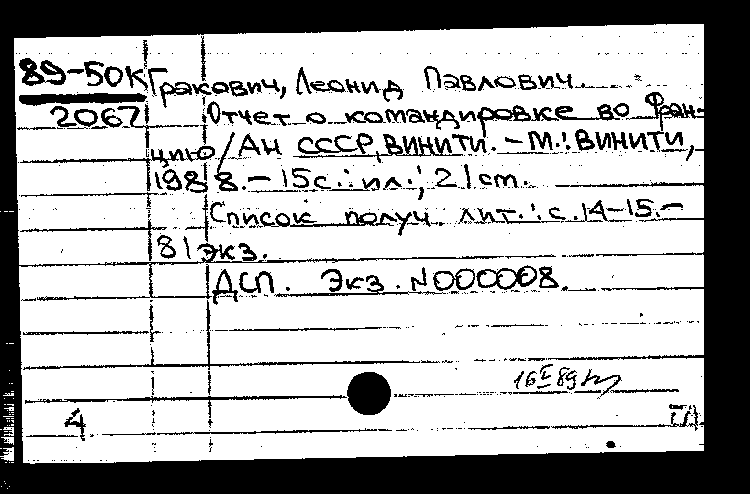 89-50К Гракович, Леонид Павлович.
2067 Отчет о командировке во Фран-
цию / Ан СССР, ВИНИТИ. – М.: ВИНИТИ,
1988. – 15 с.: ил.; 21 ст.
Список получ. лит.: с. 14-15. –
81 экз.
ДСП. Экз. N000008.
16 I 89
4